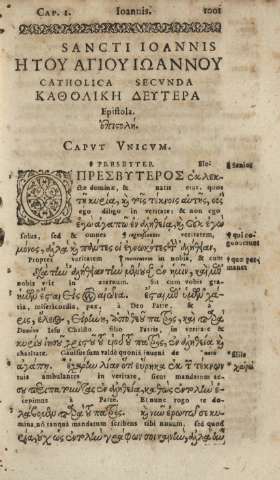 CAP. I. Ioannis. 1001
SANCTI IOANNIS
Η ΤΟΥ ΑΓΙΟΥ ΙΩΑΝΝΟΥ
CATHOLICA SECVNDA
ΚΑΘΟΛΙΚΗ ΔΕΥΤΕΡΑ
Epistola.
ἐπιστολή.
CAPVT VNICVM.
PRESBYTER Ele- Senior
ΠΡΕΣΒΥΤΕΡΟΣ ἐκλεκ-
ctæ dominæ, & natis eius, quos
τῇ κυρίᾳ, καὶ τοῖς τέκνοις αὐτῆς, οὓς
ego diligo in veritate: & non ego
ἐγὼ ἀγαπῶ ἐν ἀληθείᾳ, καὶ οὐκ ἐγὼ
solus, sed & omnes veritatem, qui co-
μόνος, ἀλλὰ καὶ πάντες οἱ ἐγνωκότες τὴν ἀλήθειαν, gnouerunt
Propter veritatem in nobis, & cum quæ per-
διὰ τὴν ἀλήθειαν τὴν ἐν ἡμῖν, καὶ μεθ' manet
nobis erit in æternum. Sit cum vobis gra-
ἡμῶν ἔσται εἰς τὸν αἰῶνα. ἔσται μεθ' ὑμῶν χά-
tia, misericordia, pax, à Deo Patre, & à
ρις, ἔλεος, εἰρήνη, πατρὸς, καὶ παρὰ
Domino Iesu Christo filio Patris, in veritate &
κυρίου ἰησοῦ χριστοῦ τοῦ υἱοῦ τοῦ πατρὸς, ἐν ἀληθείᾳ καὶ
charitate. Gauisus sum valdè quoniam inueni de
ἀγάπῃ. ἐχάρην λίαν ὅτι εὕρηκα ἐκ τῶν τέκνων
tuis ambulantes in veritate, sicut mandatum ac-
σου περιπατοῦντας ἐν ἀληθείᾳ, καθὼς ἐντολὴν ἐ-
cepimus à Patre. Et nunc rogo te do-
λάβομεν παρὰ τοῦ πατρός. καὶ νῦν ἐρωτῶ σε κυ-
mina, nō tanquā mandatum scribens tibi nouum, sed quod